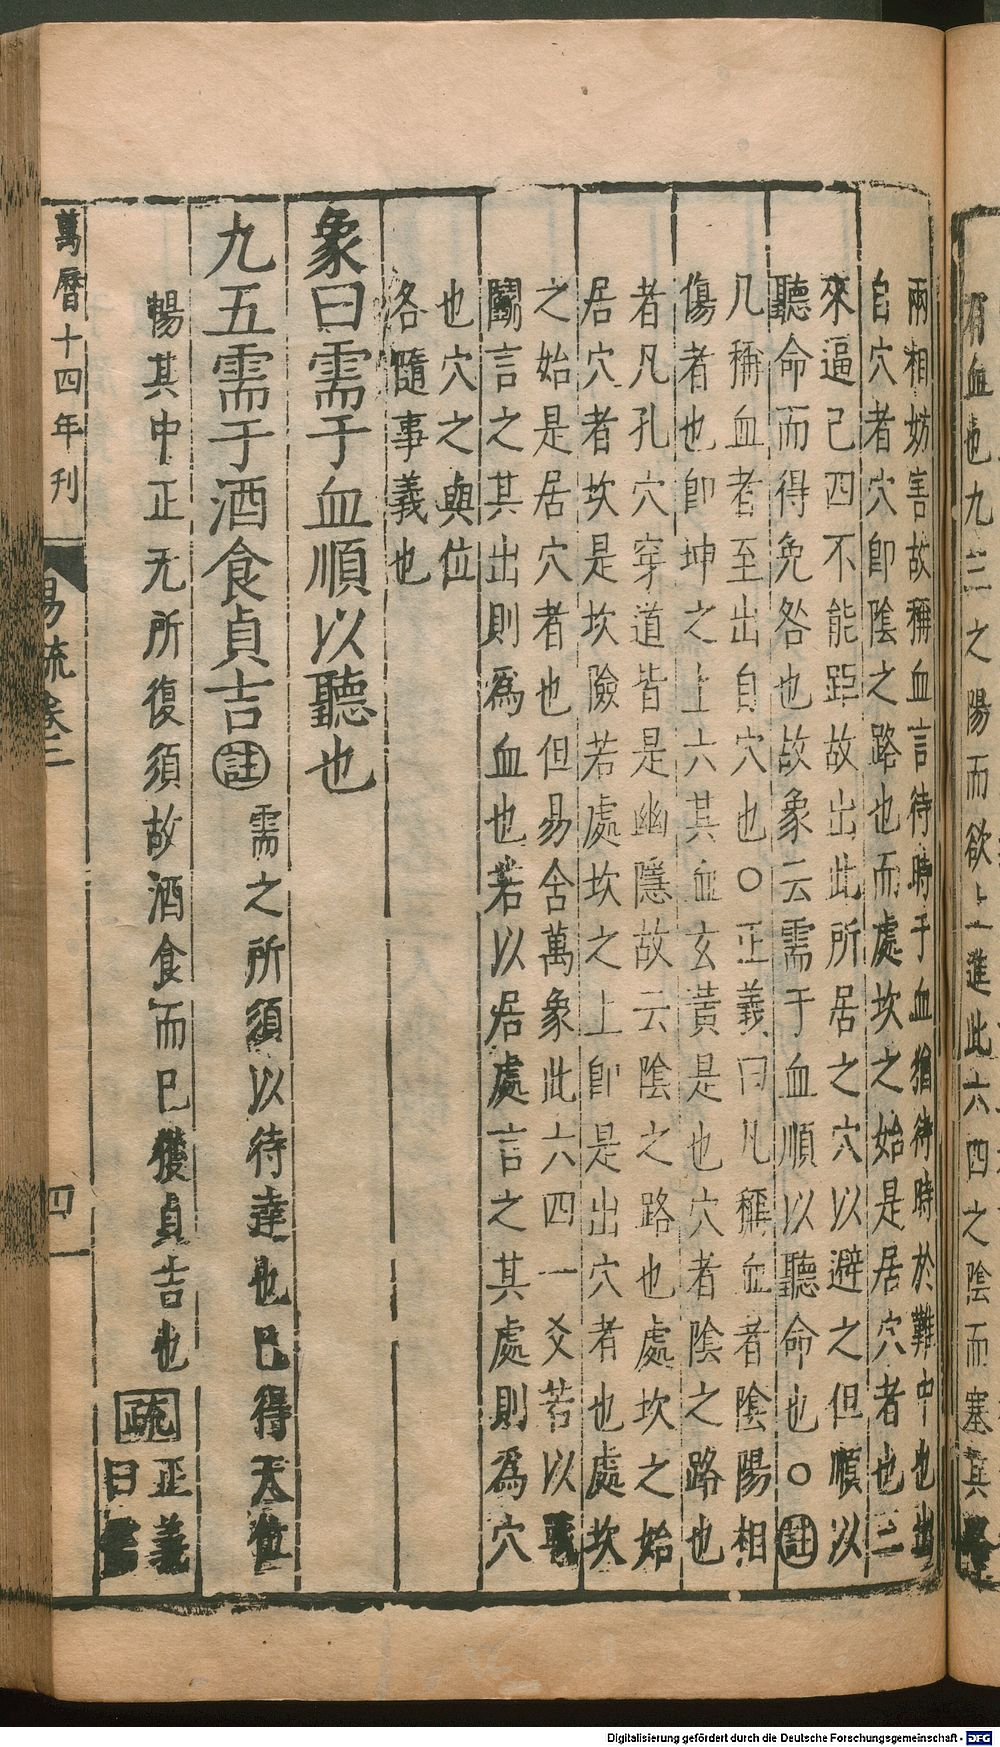 有血也九三之陽而欲上進此六四之陰而塞其
兩相妨害故稱血言待時于血猶待時於難中也出
自穴者穴即陰之路也而處坎之始是居穴者也三
來逼己四不能距故出此所居之穴以避之但順以
聽命而得免咎也故象云需于血順以聽命也○註
凡稱血者至出自穴也○正義曰凡稱血者陰陽相
傷者也即坤之上六其血玄黃是也穴者陰之路也
者凡孔穴穿道皆是幽隱故云陰之路也處坎之始
居穴者坎是坎險若處坎之上即是出穴者也處坎
之始是居穴者也但易含萬象此六四一爻若以戰
鬬言之其出則為血也若以居處言之其處則為穴
也穴之與位
各隨事義也
象曰需于血順以聽也
九五需于酒食貞吉註需之所須以待達也已得天位
暢其中正无所復須故酒食而已獲貞吉也疏正義
曰
萬曆十四年刊
易疏卷二
四
Digitalisierung gefördert durch die Deutsche Forschungsgemeinschaft - DFG